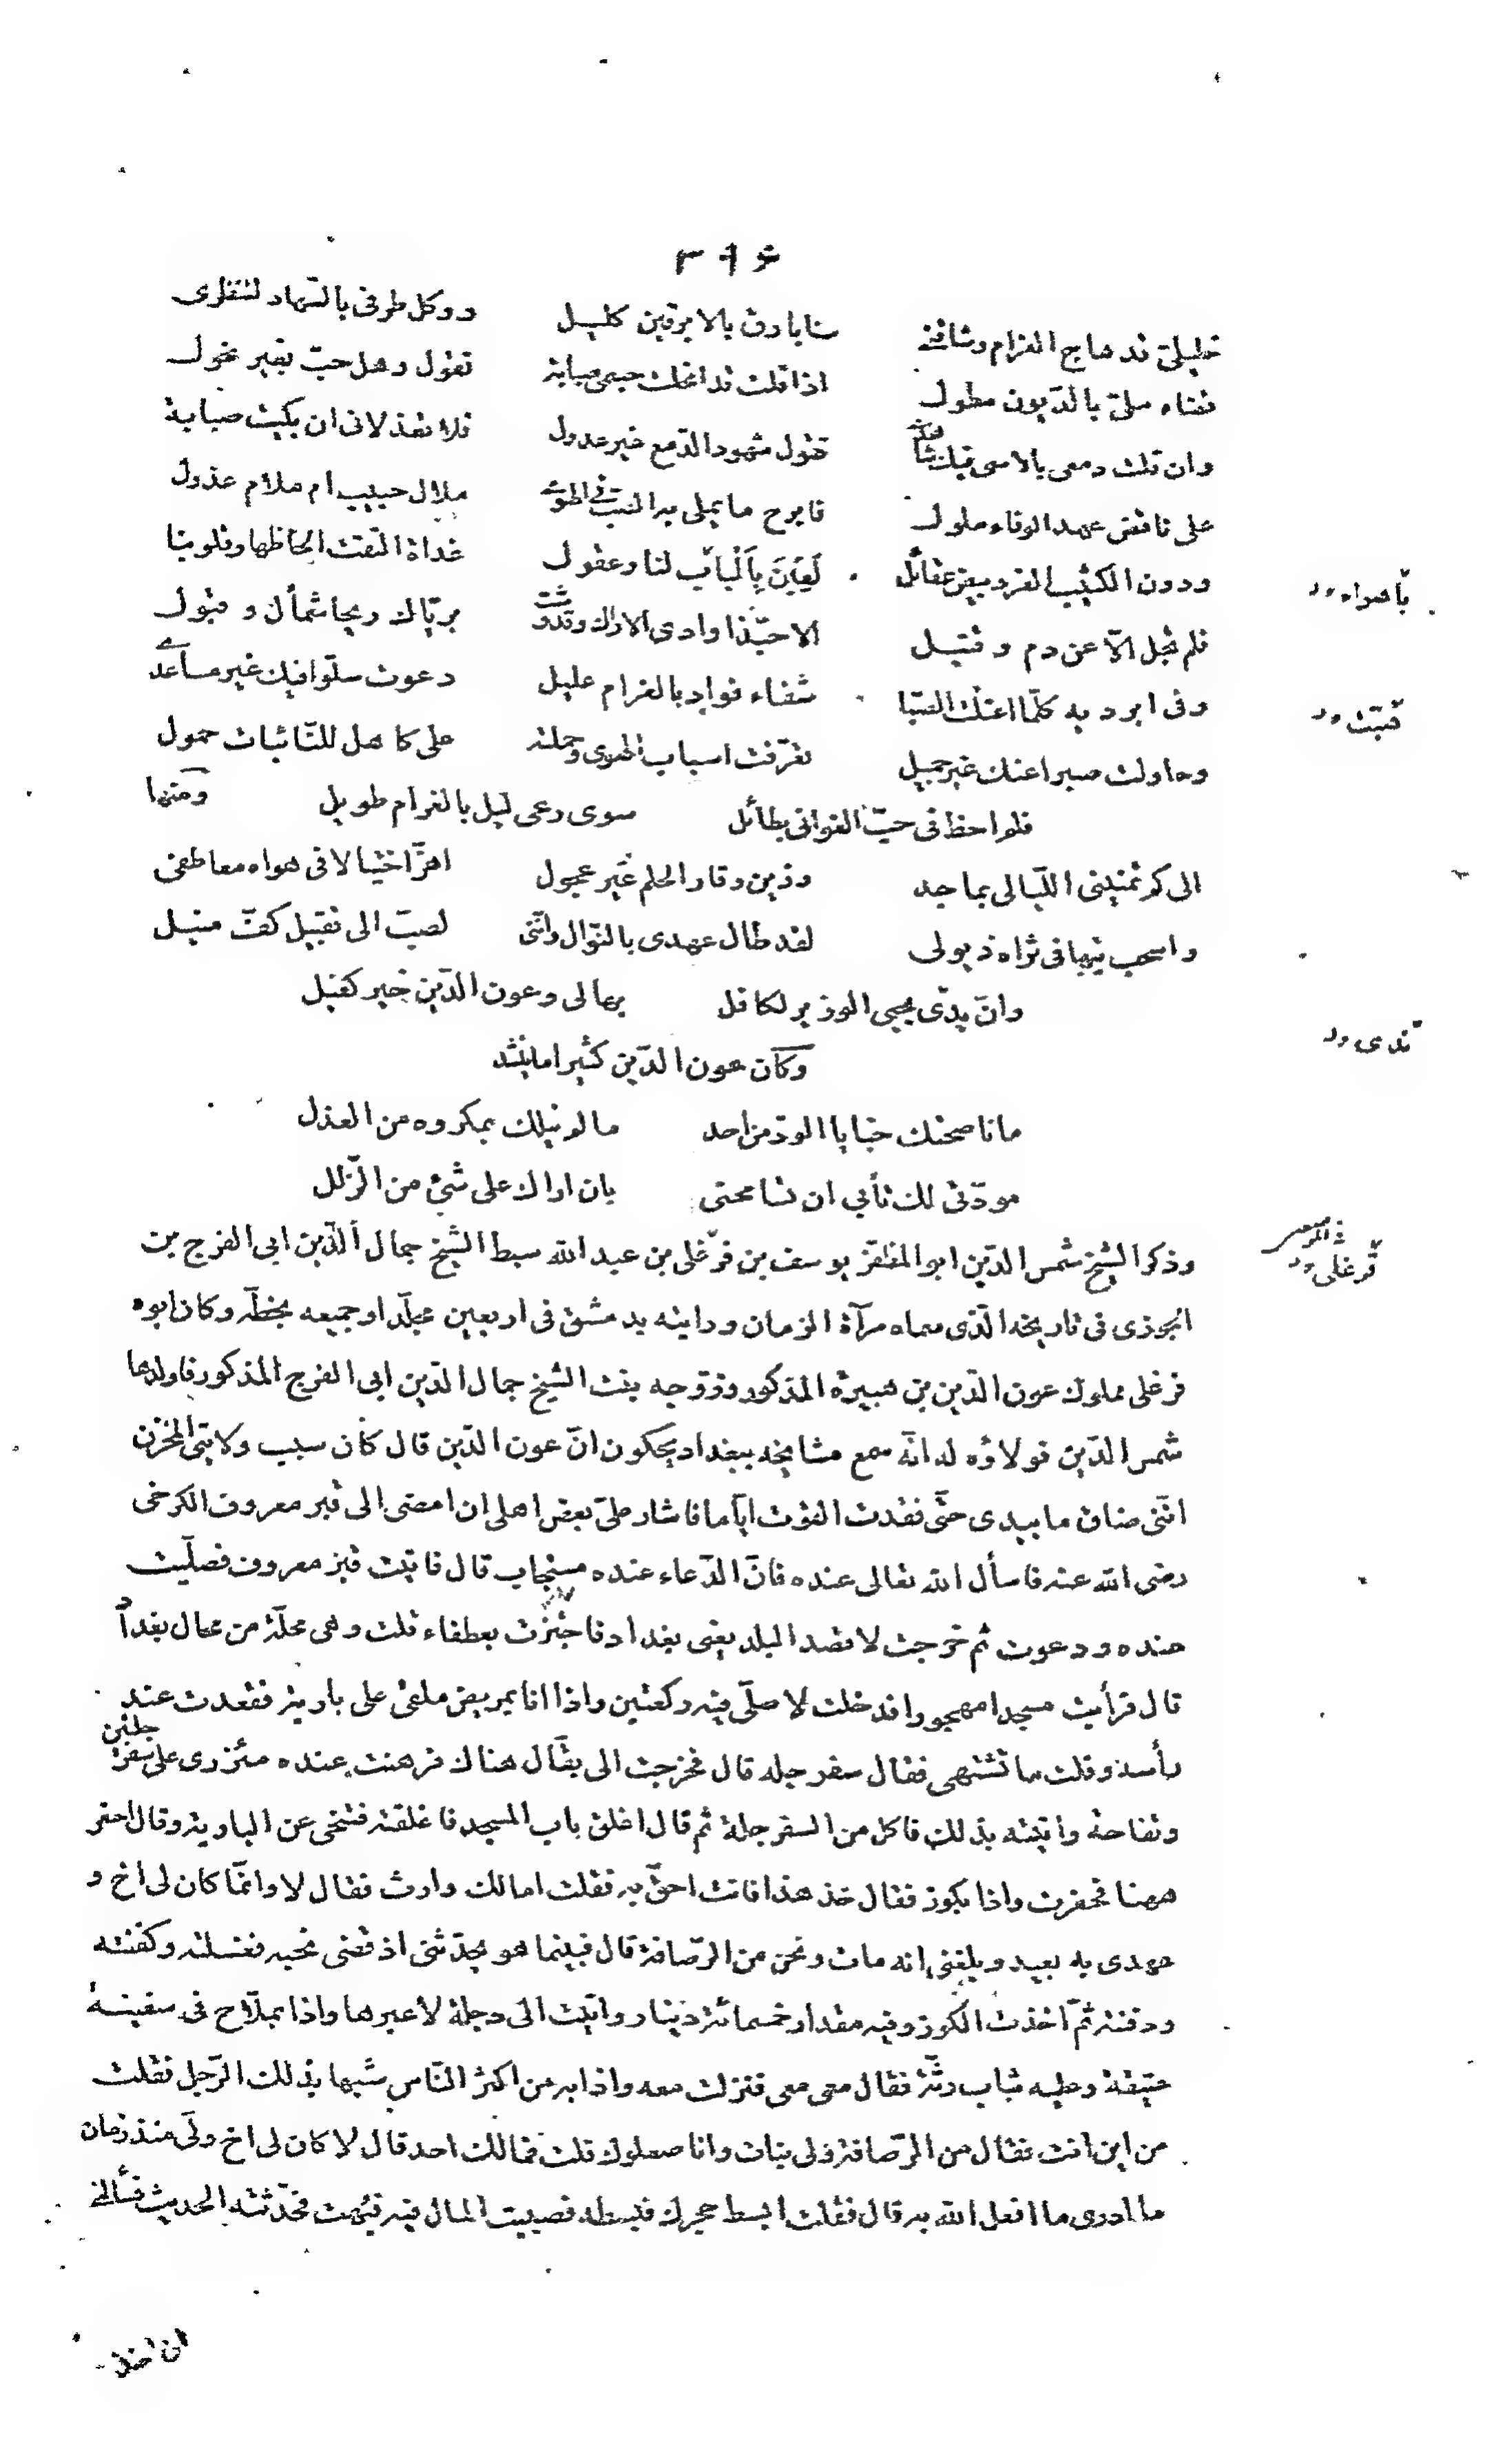 ٣٩٦
خليلىّ قد هاج الغرام وشاقنى سنا بارق بالابرقين كليل ووكل طرفى بالسّهاد لتنظرى
قضاء ملىّ بالدّيون مطول اذا قلت قد انحلت جسمى صبابة تقول وهل حبّ بغير نحول
وان قلت دمعى بالاسى فيك شاهد تقول شهود الدّمع غير عدول فلا تعذلانى ان بكيت صبابة
على ناقض عهد الوفاء ملول فابرح ما يملى به الصّب فى الهوى ملال حبيب ام ملام عذول
ودون الكثيب الفرد بيض عقائل لَعِبْنَ بِأَلْبَابٍ لنا وعقول غداة التقت الحاظها وقلوبنا
بأهواء
فلم تجل الّا عن دم وقتيل الا حبّذا وادى الاراك وقد وشت بريّاك ريحا شمأل وقبول
وفى ابرديه كلّما اعتلّت الصّبا شفاء فواد بالغرام عليل دعوت سلوّا فيك غير مساعدى
وحاولت صبرا عنك غير جميل تعرّفت اسباب الهوى وحملته على كاهل للنّائبات حمول
فلم احظ فى حبّ الغوانى بطائل سوى رعى ليل بالغرام طويل ومنها
الى كم تمنينى اللّيالى بماجد رزين وقار الحلم غير عجول اهزّ اختيالا فى هواه معاطفى
واسحب تيها فى ثراه ذيولى لقد طال عهدى بالنّوال وانّنى لصبّ الى تقبيل كفّ منيل
وانّ يدى يحيى الوزير لكافل بها لى وعون الدّين خير كفيل
ندى
وكان عون الدّين كثيرا ما ينشد
ما ناصحتك خبايا الودّ من احد ما لم ينلك بمكروه من العذل
مودّتى لك تأبى ان تسامحنى بان اراك على شئ من الزّلل
وذكر الشيخ شمس الدّين ابو المظفّر يوسف بن قرغلى بن عبد الله سبط الشيخ جمال الدّين ابى الفرج بن
قرغلى
الجوزى فى تاريخه الّذى سماه مرآة الزمان ورايته بدمشق فى اربعين مجلّدا وجميعه بخطّه وكان ابوه
قرغلى مملوك عون الدّين بن هبيرة المذكور وزوّجه بنت الشيخ جمال الدّين ابى الفرج المذكور فاولدها
شمس الدّين فولاؤه له انّه سمع مشايخه ببغداد يحكون انّ عون الدّين قال كان سبب ولايتى المخزن
انّنى ضاق ما بيدى حتّى فقدت القوت ايّاما فاشار علىّ بعض اهلى ان امضى الى قبر معروف الكرخى
رضى الله عنه فاسأل الله تعالى عنده فانّ الدّعاء عنده مستجاب قال فاتيت قبر معروف فصلّيت
عنده ودعوت ثم خرجت لاقصد البلد يعنى بغداد فاجتزت بقطفاء قلت وهى محلّة من محال بغداد
قال فرأيت مسجدا مهجورا فدخلت لاصلّى فيه ركعتين واذا انا بمريض ملقى على بارية فقعدت عند
رأسه وقلت ما تشتهى فقال سفرجله قال فخرجت الى بقّال هناك فرهنت عنده مئزرى على سفرجلتين
وتفاحة واتيته بذلك فاكل من السفرجلة ثم قال اغلق باب المسجد فاغلقته فتنحى عن البارية وقال احفر
ههنا فحفرت واذا بكوز فقال خذ هذا فانت احقّ به فقلت اما لك وارث فقال لا وانّما كان لى اخ و
عهدى به بعيد وبلغنى انه مات ونحن من الرّصافة قال فبينما هو يحدّثنى اذ قضى نحبه فغسلته وكفنته
ودفنته ثمّ اخذت الكوز وفيه مقدار خمسمائة دينار واتيت الى دجلة لاعبرها واذا بملّاح فى سفينة
عتيقة وعليه ثياب رثّة فقال معى معى فنزلت معه واذا به من اكثر النّاس شبها بذلك الرّجل فقلت
من اين انت فقال من الرّصافة ولى بنات وانا صعلوك قلت فمالك احد قال لا كان لى اخ ولى منذ زمان
ما ادرى ما افعل الله به قال فقلت ابسط حجرك فبسطه فصببت المال فيه فبهت فحدّثته الحديث فسألنى
ان اخذ